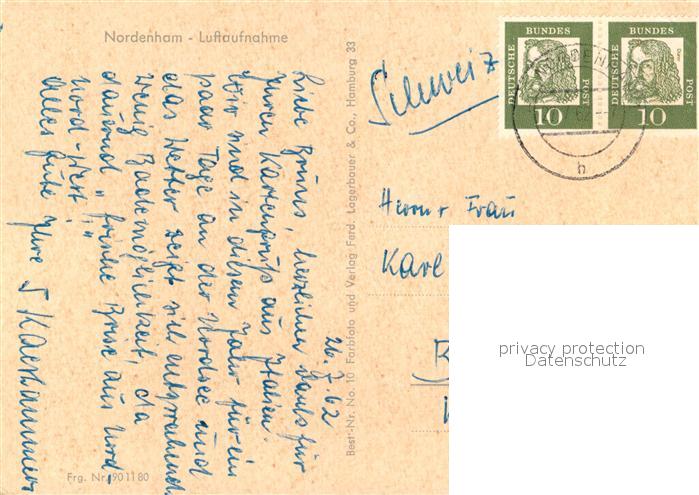 Nordenham - Luftaufnahme
26.7.62
Liebe Bruns, herzlichen Dank für
Ihren Kartengruß aus Italien.
Wir sind in diesem Jahr für ein
paar Tage an der Nordsee und
das Wetter zeigt sich entsprechend.
wenig Bademöglichkeit, da
dauernd "frische Brise aus Nord,
nord-West"
Alles Gute Ihre
Frg. Nr. 901180
Best-Nr. No. 10 Farbfoto und Verlag Ferd. Lagerbauer & Co., Hamburg 33
Schweiz
DEUTSCHE BUNDES POST 10
DEUTSCHE BUNDES POST 10
h
Herrn + Frau
Karl
privacy protection
Datenschutz